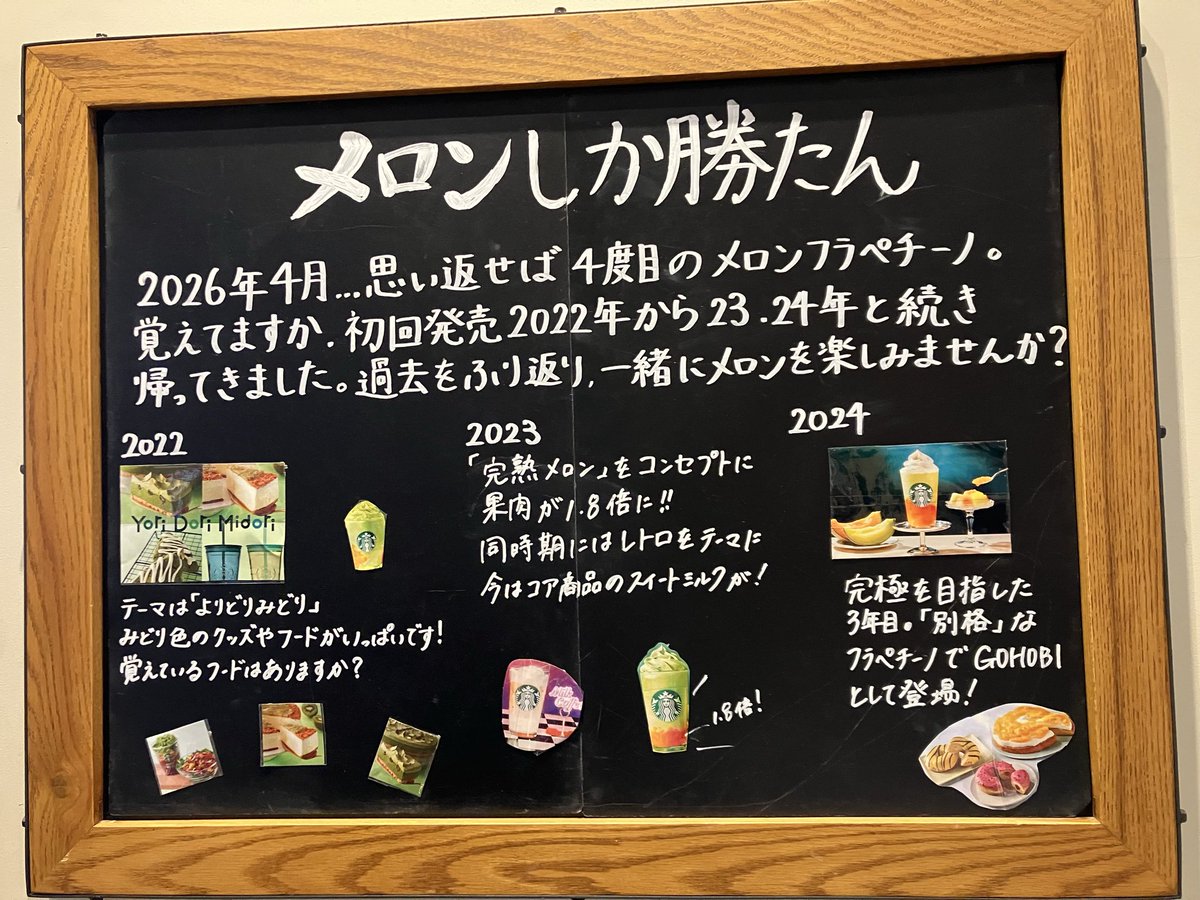 メロンしか勝たん
2026年4月...思い返せば4度目のメロンフラペチーノ。
覚えてますか.初回発売2022年から23.24年と続き
帰ってきました。過去をふり返り、一緒にメロンを楽しみませんか?
2022
Yori Dori Midori
テーマは「よりどりみどり」
みどり色のグッズやフードがいっぱいです!
覚えているフードはありますか?
2023
「完熟メロン」をコンセプトに
果肉が1.8倍に!!
同時期にはレトロをテーマに
今はコア商品のスイートミルクが!
1.8倍!
2024
完極を目指した
3年目。「別格」な
フラペチーノでGOHOBI
として登場!